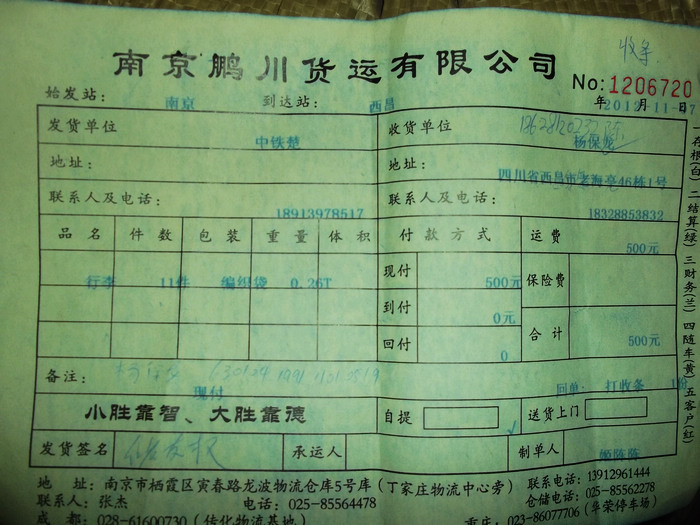 收条
南京鹏川货运有限公司
No:1206720
始发站: 南京 到达站: 西昌 年2012-11-17
发货单位 中铁楚 收货单位 杨保龙
地址: 地址: 四川省西昌市老海亭46栋1号
联系人及电话: 18913978517 联系人及电话: 18328853832
品名 件数 包装 重量 体积 付款方式 运费 500元
行李 11件 编织袋 0.26T 现付 500元 保险费
到付 0元
回付 0元 合计 500元
备注: 现付 回单: 打收条 1份
小胜靠智、大胜靠德 自提 送货上门
发货签名 承运人 制单人 姬陈陈
地址:南京市栖霞区寅春路龙波物流仓库5号库(丁家庄物流中心旁) 联系电话:13912961444
联系人:张杰 电话:025-85564478 仓储电话:025-85562278
成都:028-61600730(传化物流基地) 重庆:023-86077706(华荣停车场)
存根(白) 二结算(绿) 三财务(兰) 四随车(黄) 五客户(红)